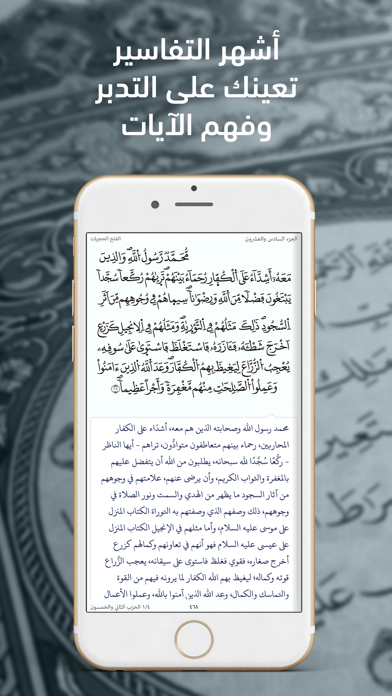 أشهر التفاسير
تعينك على التدبر
وفهم الآيات
الجزء السادس والعشرون
الفتح الحجرات
مُّحَمَّدٌ رَّسُولُ اللَّهِ وَالَّذِينَ
مَعَهُ أَشِدَّاءُ عَلَى الْكُفَّارِ رُحَمَاءُ بَيْنَهُمْ تَرَىٰهُمْ رُكَّعًا سُجَّدًا
يَبْتَغُونَ فَضْلًا مِّنَ اللَّهِ وَرِضْوَٰنًا سِيمَاهُمْ فِي وُجُوهِهِم مِّنْ أَثَرِ
السُّجُودِ ذَٰلِكَ مَثَلُهُمْ فِي التَّوْرَىٰةِ وَمَثَلُهُمْ فِي الْإِنجِيلِ كَزَرْعٍ
أَخْرَجَ شَطْـَٔهُ فَـَٔازَرَهُ فَاسْتَغْلَظَ فَاسْتَوَىٰ عَلَىٰ سُوقِهِ
يُعْجِبُ الزُّرَّاعَ لِيَغِيظَ بِهِمُ الْكُفَّارَ وَعَدَ اللَّهُ الَّذِينَ ءَامَنُوا
وَعَمِلُوا الصَّٰلِحَٰتِ مِنْهُم مَّغْفِرَةً وَأَجْرًا عَظِيمًا ٢٩
محمد رسول الله وصحابته الذين هم معه، أشدّاء على الكفار
المحاربين، رحماء بينهم متعاطفون متوادُّون، تراهم – أيها الناظر
– رُكَّعًا سُجَّدًا لله سبحانه، يطلبون من الله أن يتفضل عليهم
بالمغفرة والثواب الكريم، وأن يرضى عنهم، علامتهم في وجوههم
من آثار السجود ما يظهر من الهدي والسمت ونور الصلاة في
وجوههم، ذلك وصفهم الذي وصفتهم به التوراة الكتاب المنزل
على موسى عليه السلام، وأما مثلهم في الإنجيل الكتاب المنزل
على عيسى عليه السلام فهو أنهم في تعاونهم وكمالهم كزرع
أخرج صغاره، فقوي فغلظ فاستوى على سيقانه، يعجب الزُّراع
قوته وكماله؛ ليغيظ بهم الله الكفار لما يرونه فيهم من القوة
والتماسك والكمال، وعد الله الذين آمنوا بالله، وعملوا الأعمال
٤٦٨
١/٤ الحزب الثاني والخمسون